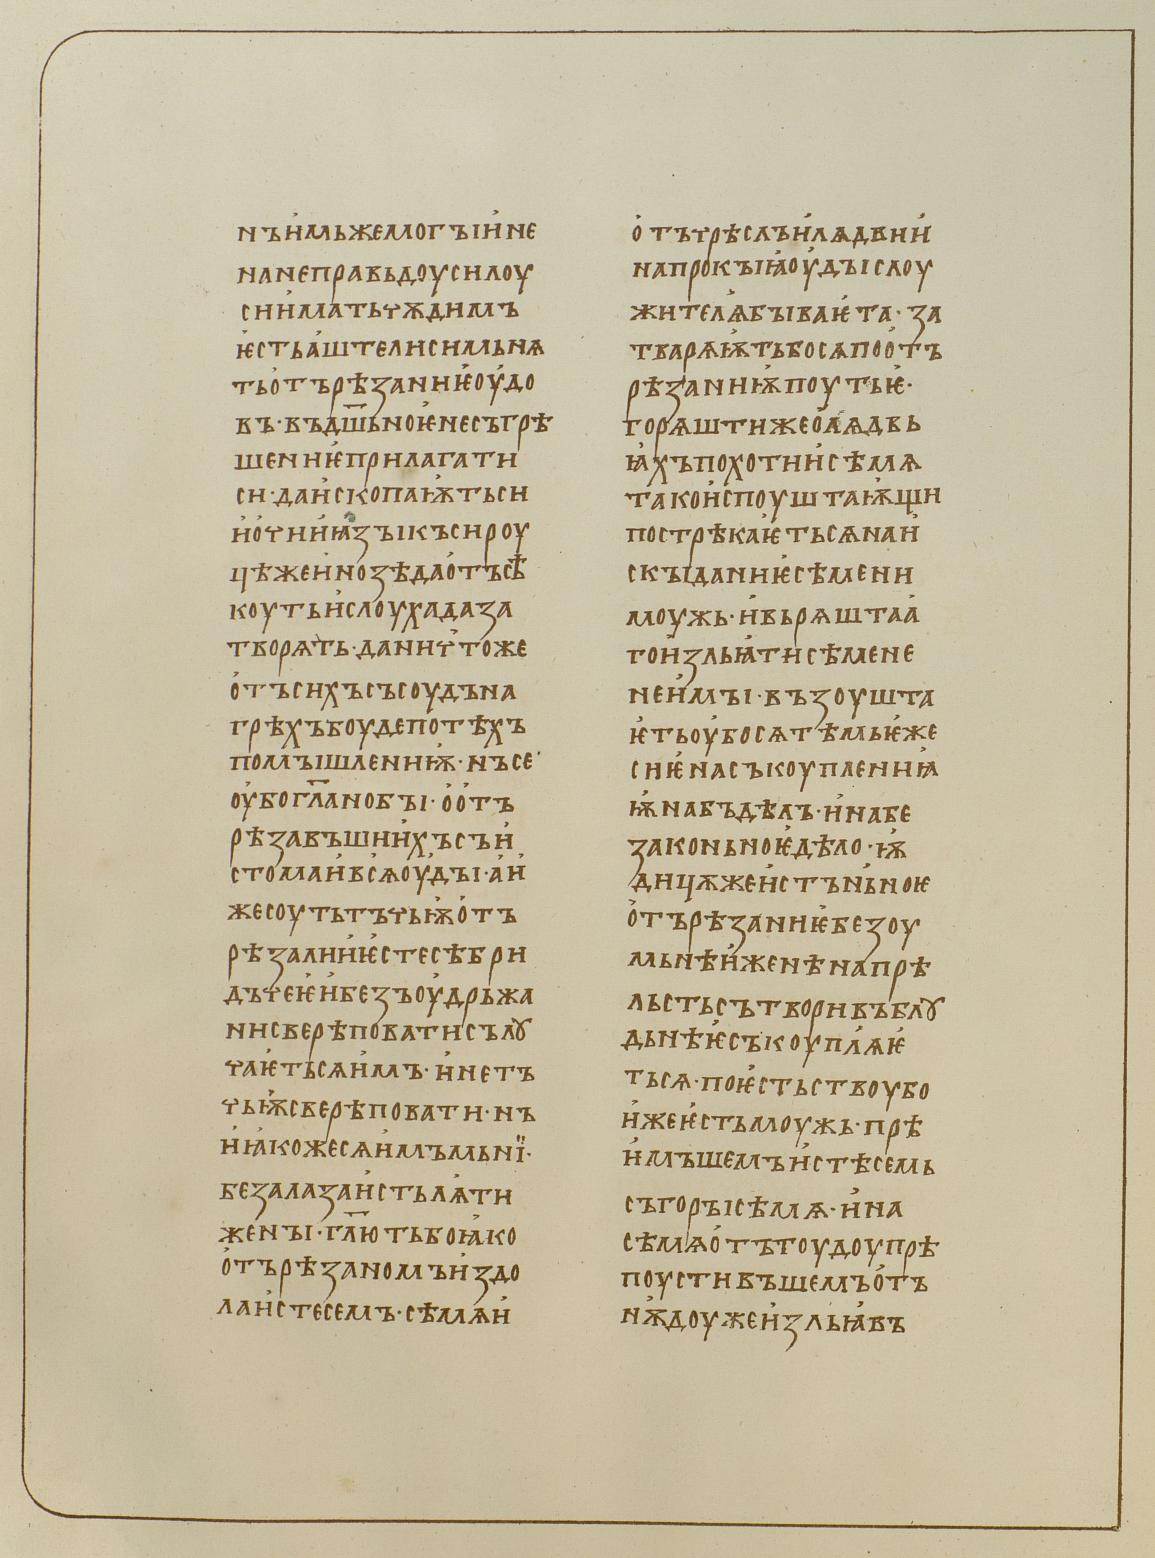 нъи҆мьжемогъіи҆не
нанеправьдоусилоу
сии҆матьчѫдимъ
ѥ҆стьа҆штелисильнѧ
тьо҆търѣзаниѥоу҆до
въ·въдш҃ьноѥнесъгрѣ
шениѥприлагати
си·даи҆скопаѭтьси
и҆о҆чии҆ꙗзъікъсироу
цѣжеи҆нозѣдао҆тъсѣ
коутьи҆слоухадаза
творѧть·данич҆тоже
о҆тъсихъсъсоудъна
грѣхъбоудепо҆тѣхъ
помъішлениѭ·нъсе
оу҆богл҃анобъі·о҆о҆тъ
рѣзавъшии҆хъсъи҆
стомаи҆всѧоу҆дъі·а҆и҆
жесоутьтъчьѭо҆тъ
рѣзалии҆ѥ҆стесѣбри
дъчеѥ҆и҆безъоу҆дрьжа
нисверѣповатисълꙋ
чаѥ҆тьсѧи҆мъ·и҆нетъ
чьѭсверѣповати·нъ
и҆ꙗкожесѧи҆мъмьнї·
безалазаи҆стьлѧти
женъі·гл҃ютьбоꙗко
о҆търѣзаномъи҆здо
лаи҆стесемъ·сѣмѧи҆
о҆тътрѣслъи҆лѧдвии҆
напрокъіꙗ҆оу҆дъіслоу
жителѧбъіваѥ҆та·за
тварѧѭтьбосѧпоо҆тъ
рѣзаниѭпоутьѥ·
горѧштижео҆а҆ѧдвь
ꙗхъпохотнии҆сѣмѧ
такои҆споуштаѭщи
пострѣкаѥ҆тьсѧнаи҆
скъіданиѥсѣмени
моужь·и҆вьрѧштаа҆
гои҆зльꙗтисѣмене
неи҆мъі·възоушта
ѥ҆тьоу҆босѧтѣмьѥ҆же
сиѥ҆насъкоуплениꙗ
ѭ҆набъдѣлъ·и҆набе
законьноѥ҆дѣло·ѭ҆
дицѫжеи҆стъньноѥ
о҆търѣзаниѥбезоу
мьнѣи҆женѣнапрѣ
льстьсътворивъблꙋ
дьнѣѥ҆съкоуплꙗѥ҆
тьсѧ·поѥ҆стьствоубо
и҆жеѥ҆стьмоужь·прѣ
и҆мъшемъи҆стѣсемь
съгоръісѣмѧ·и҆на
сѣмѧо҆тътоудоупрѣ
поустивъшемъо҆тъ
нѫ҆доужеи҆зльꙗвъ